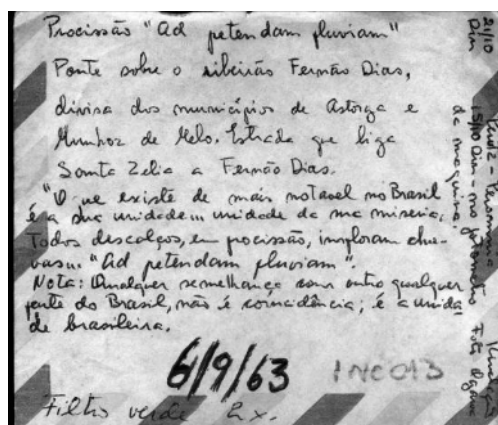 Procissão "Ad petendam pluviam"
Ponte sobre o ribeirão Fernão Dias,
divisa dos municípios de Astorga e
Munhoz de Melo. Estrada que liga
Santa Zelia a Fernão Dias.
"O que existe de mais notavel no Brasil
é a sua unidade... unidade da sua miseria,
Todos descalços, em procissão, imploram chu-
vas... "Ad petendam pluviam".
Nota: Qualquer semelhança com outro qualquer
ponte do Brasil, não é coincidência; é a unida
de brasileira.
6/9/63
INC013
Filtro verde 2x.
21/10
Din
15/10 Din - no fotometro
da maquina.
Foto